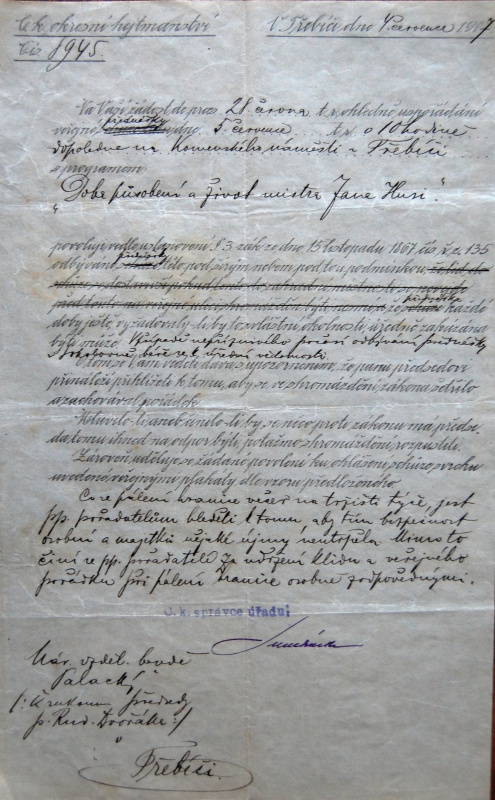 C. k. okresní hejtmanství
V Třebíči dne 4. července 1907
čís 8945.
Na Vaši žádost de praes 28 června t. r. ohledně uspořádání
veřejné přednášky dne 5 července t. r. o 10 hodině
dopoledne na Komenského náměstí v Třebíči
s programem
"Doba působení a život mistra Jana Husi."
povoluji vedle ustanovení § 3. zák. ze dne 15 listopadu 1867 čís. ř. z. 135
odbývání přednášky této pod širým nebem pod tou podmínkou,
přednáška každé
doby ještě, vyžadovaly-li by to zvláštní okolnosti, úředně zakázána
býti může. V případě nepříznivého počasí odbývání přednášky
v Sokolovně, béře se k úřední vědomosti.
O tom se Vám věděti dává s upozorněním, že panu předsedovi
přináleží přihlížeti k tomu, aby se ve shromáždění zákona šetřilo
a zachovával pořádek.
Mluvilo-li aneb činilo-li by se něco proti zákonu má předse-
da tomu ihned na odpor býti, po tažmo shromáždění rozpustiti.
Zároveň uděluje se žádané povolení ku ohlášení schůze svrchu
uvedené veřejnými plakáty dle vzoru předloženého.
Co se pálení hranice večer na tržišti týče, jest
pp. pořadatelům hleděti k tomu, aby tím bezpečnost
osobní a majetků nějaké újmy neutrpěla. Mimo to
činí se pp. pořadatelé za udržení klidu a veřejného
pořádku při pálení hranice osobně zodpovědnými.
C. k. správce úřadu:
Nár. vzděl. besedě
"Palacký"
/: k rukoum předsedy
p. Rud. Dvořáka :/
v
Třebíči.